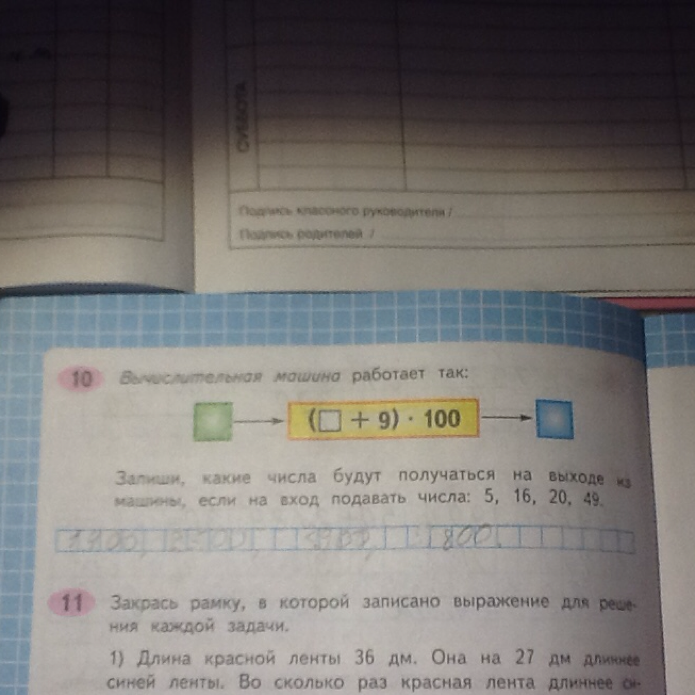 СУББОТА
Подпись классного руководителя /
Подпись родителей /
10 Вычислительная машина работает так:
(□ + 9) · 100
Запиши, какие числа будут получаться на выходе из
машины, если на вход подавать числа: 5, 16, 20, 49.
800
11 Закрась рамку, в которой записано выражение для реше-
ния каждой задачи.
1) Длина красной ленты 36 дм. Она на 27 дм длиннее
синей ленты. Во сколько раз красная лента длиннее си-